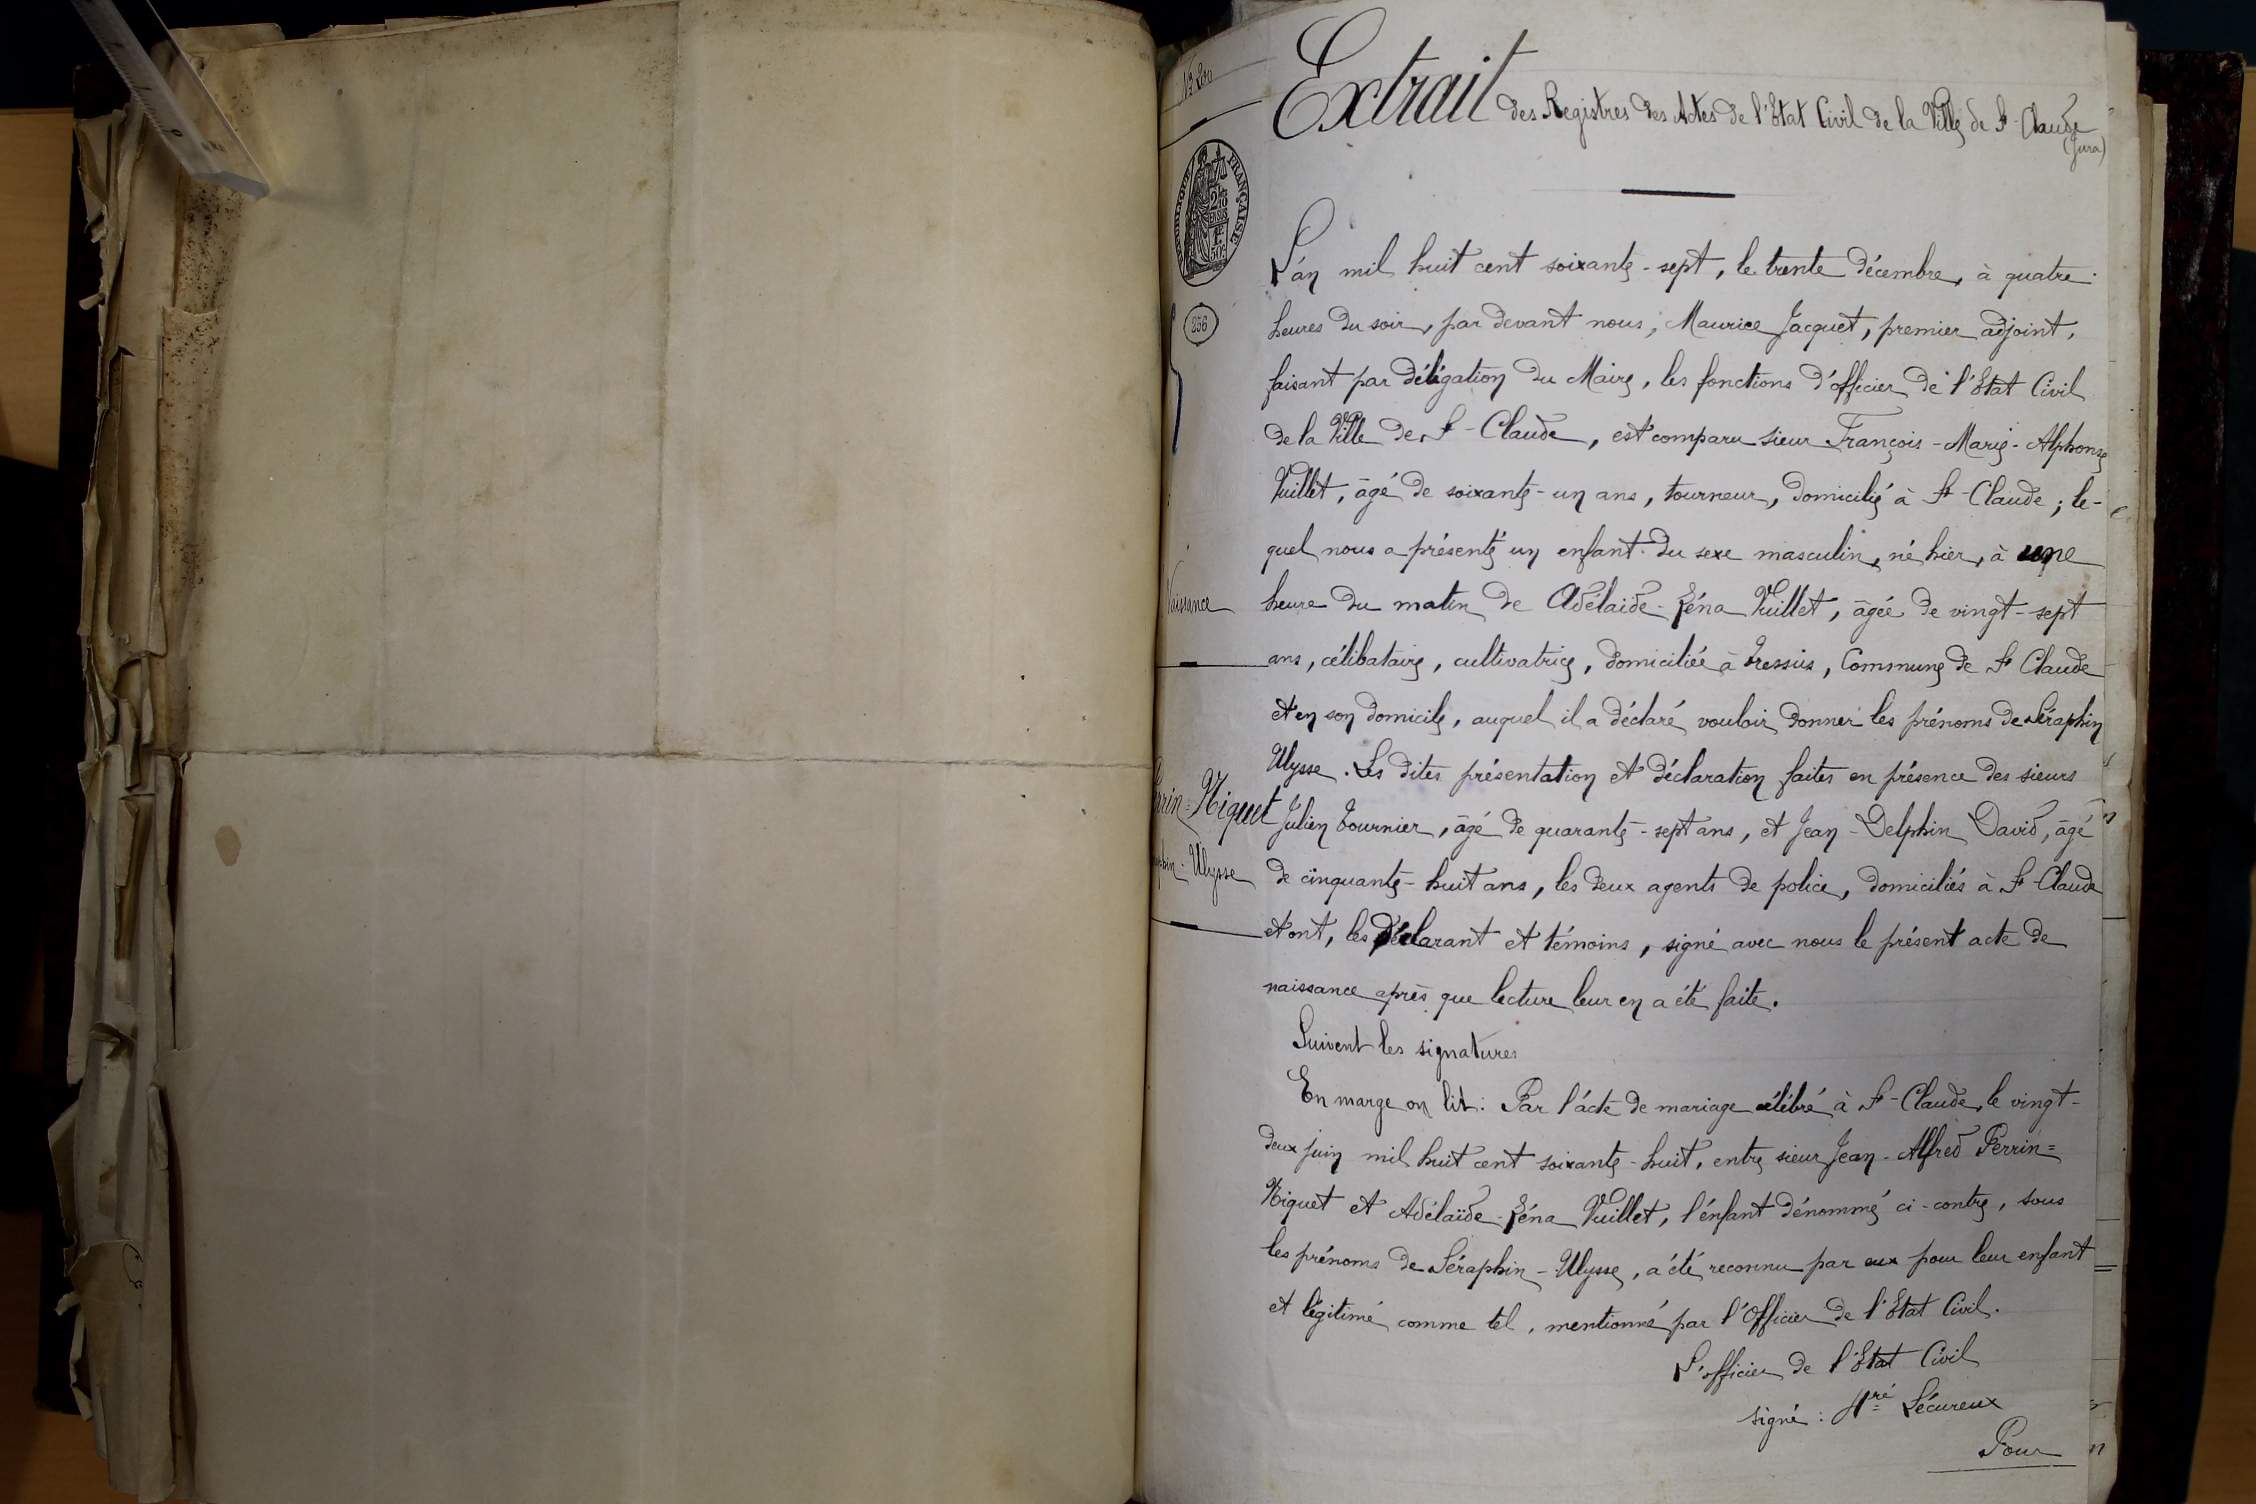 Extrait des Registres des Actes de l'Etat Civil de la Ville de St-Claude
(Jura)
FRANÇAISE
2/10
EN SUS
1F
50c
256
L'an mil huit cent soixante-sept, le trente décembre, à quatre
heures du soir, par devant nous, Maurice Jacquet, premier adjoint,
faisant par délégation du Maire, les fonctions d'officier de l'Etat Civil
de la Ville de St-Claude, est comparu sieur François-Marie-Alphonse
Vuillet, âgé de soixante-un ans, tourneur, domicilié à St-Claude; le-
quel nous a présenté un enfant du sexe masculin, né hier, à une
Naissance
heure du matin de Adélaïde-Zéna Vuillet, âgée de vingt-sept
ans, célibataire, cultivatrice, domiciliée à Tressus, Commune de St Claude
et en son domicile, auquel il a déclaré vouloir donner les prénoms de Séraphin
Ulysse. Les dites présentation et déclaration faites en présence des sieurs
Perrin=Niquet
Julien Tournier, âgé de quarante-sept ans, et Jean-Delphin David, âgé
Séraphin-Ulysse
de cinquante-huit ans, les deux agents de police, domiciliés à St-Claude
et ont, les déclarant et témoins, signé avec nous le présent acte de
naissance après que lecture leur en a été faite.
Suivent les signatures
En marge on lit: Par l'acte de mariage célébré à St-Claude, le vingt-
deux juin mil huit cent soixante-huit, entre sieur Jean-Alfred Perrin=
Niquet et Adélaïde-Zéna Vuillet, l'enfant dénommé ci-contre, sous
les prénoms de Séraphin-Ulysse, a été reconnu par eux pour leur enfant
et légitimé comme tel, mentionné par l'Officier de l'Etat Civil.
L'officier de l'Etat Civil
signé: Hré Lécureux
Pour